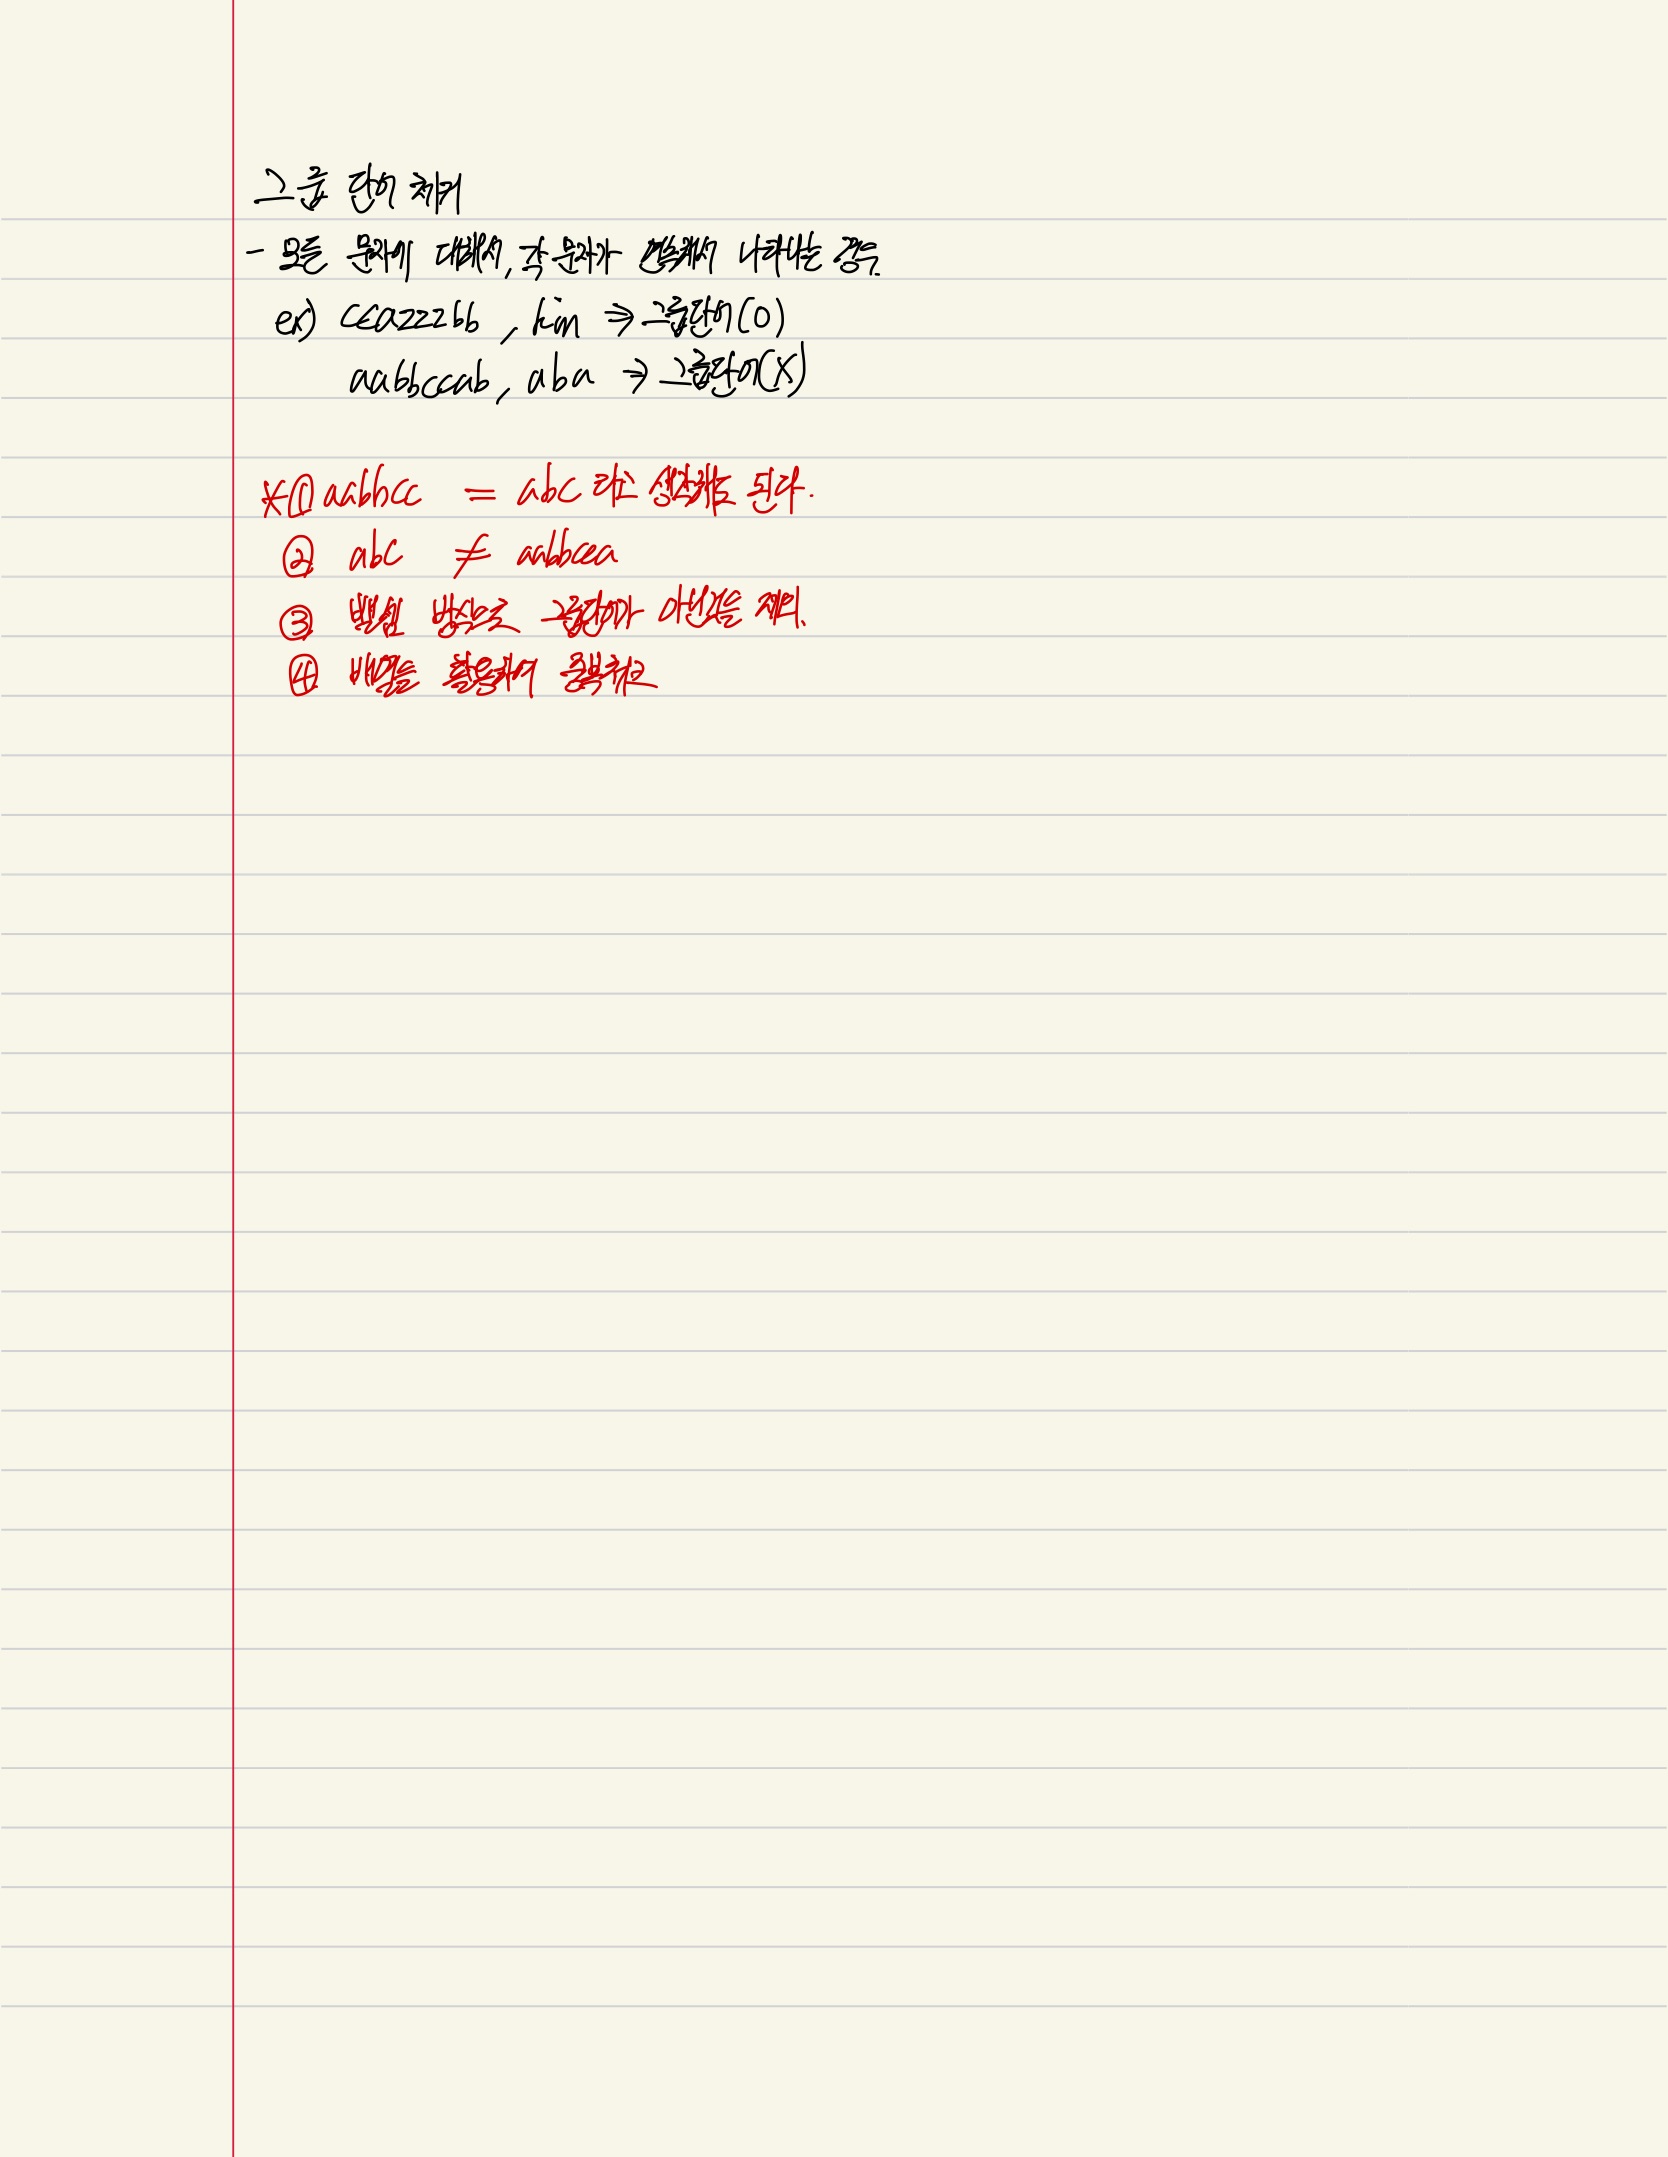 그룹 단어 체커
- 모든 문자에 대해서, 각 문자가 연속해서 나타나는 경우.
ex) ccazzzbb, kin ⇒ 그룹단어(O)
aabbccab, aba ⇒ 그룹단어(X)
*① aabbcc = abc 라고 생각해도 된다.
② abc ≠ aabbcca
③ 뺄셈 방식으로 그룹단어가 아닌것을 제외.
④ 배열을 활용하여 중복체크